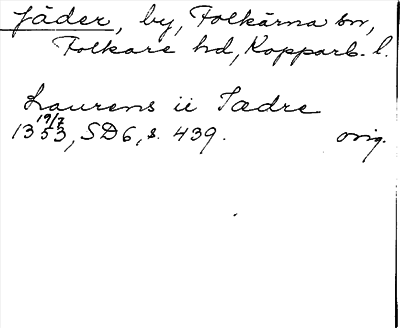 Jäder, by, Folkärna sn,
Folkare hd, Kopparb. l.
Laurens ii Jædre
19/7
1353, SD6, s. 439. orig.